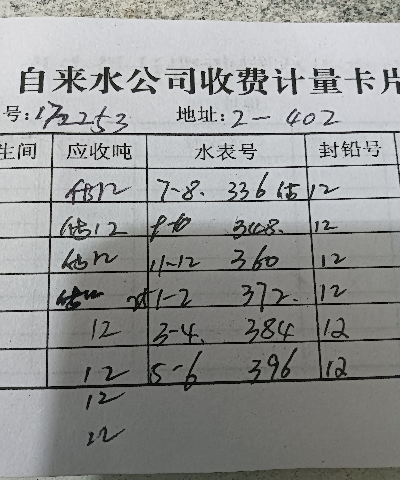 自来水公司收费计量卡片
号:172253 地址:2-402
生间 应收吨 水表号 封铅号
估12 7-8. 336 估 12
估12 9-10 348. 12
估12 11-12 360 12
1-2 372. 12
12 3-4. 384 12
12 5-6 396 12
12
12